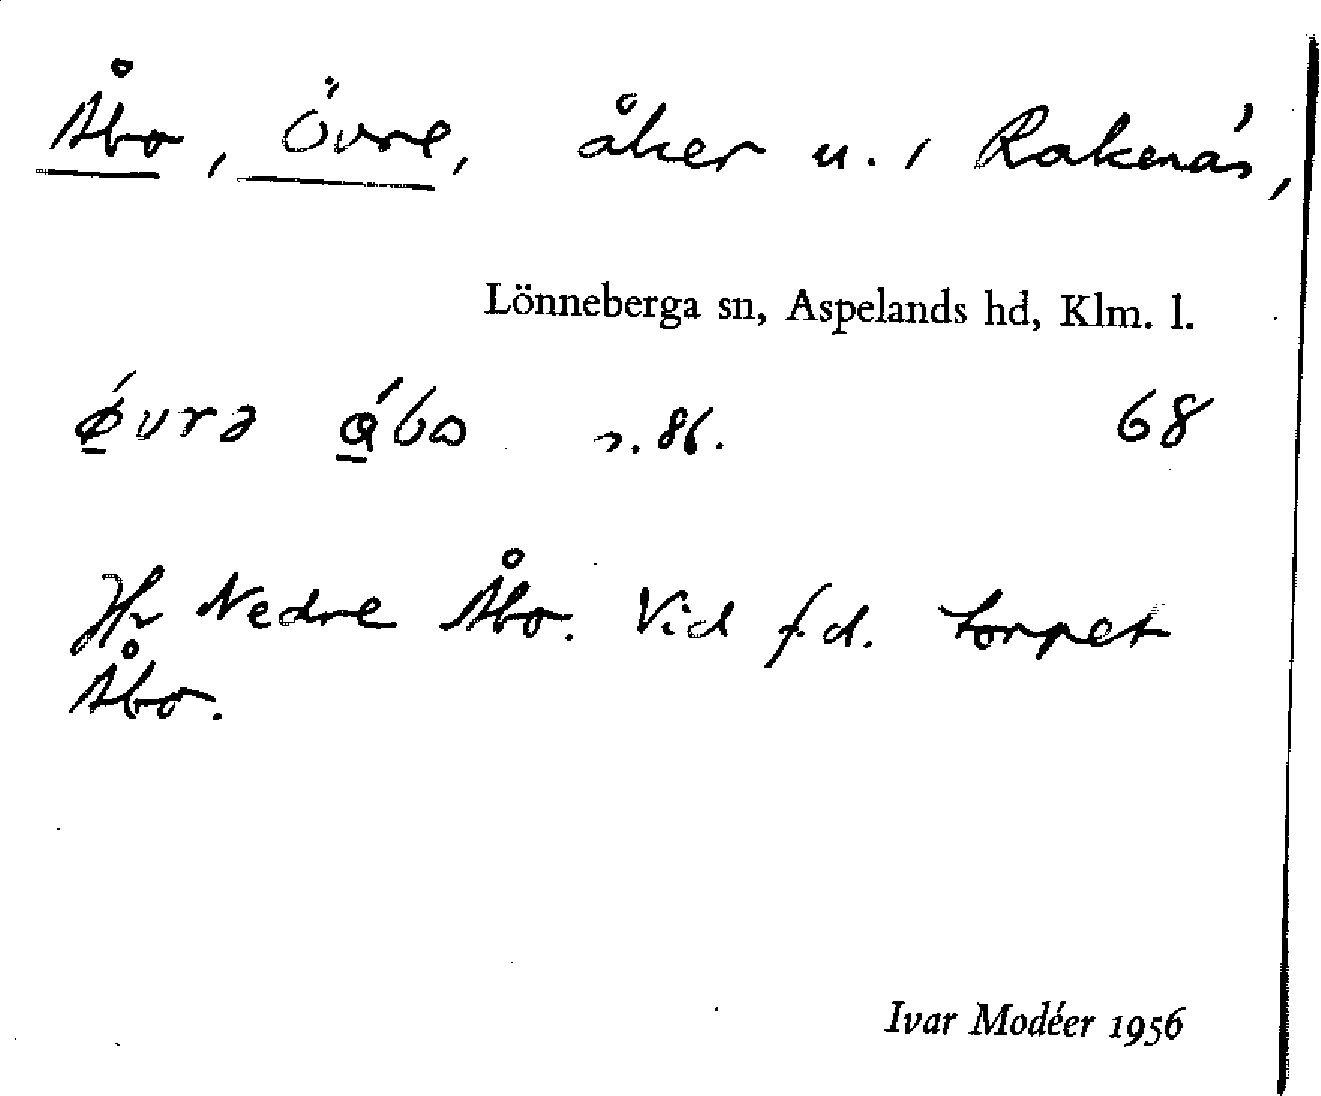 Åbo, Övre, åker u. i Rakenäs,
Lönneberga sn, Aspelands hd, Klm. l.
s. 86. 68
Nedre Åbo. Vid f.d. torpet
Åbo.
Ivar Modéer 1956